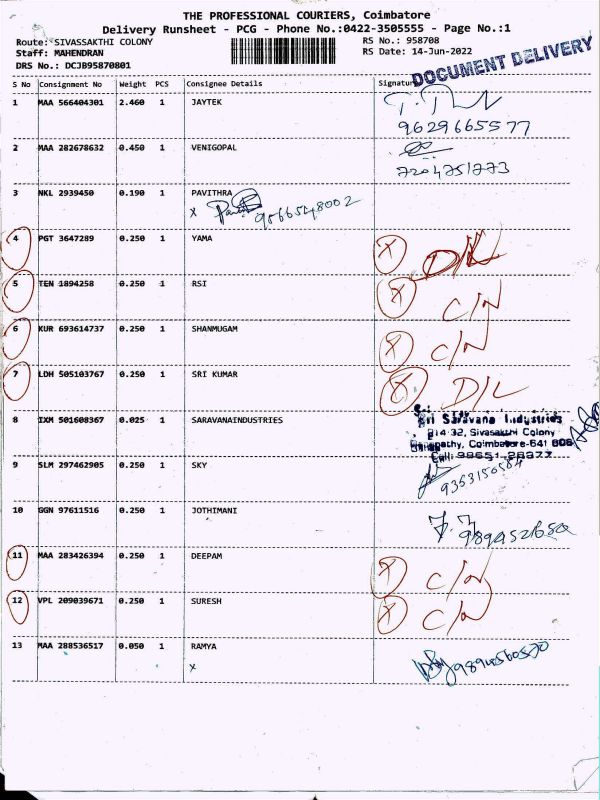 THE PROFESSIONAL COURIERS, Coimbatore
Delivery Runsheet - PCG - Phone No.:0422-3505555 - Page No.:1
Route: SIVASSAKTHI COLONY RS No.: 958708
Staff: MAHENDRAN RS Date: 14-Jun-2022
DRS No.: DCJB95870801
DOCUMENT DELIVERY
S No Consignment No Weight PCS Consignee Details Signature
1 MAA 566404301 2.460 1 JAYTEK
9629665577
2 MAA 282678632 0.450 1 VENIGOPAL
7204751773
3 NKL 2939450 0.190 1 PAVITHRA
x 9566548002
4 PGT 3647289 0.250 1 YAMA X D/L
5 TEN 1894258 0.250 1 RSI X C/N
6 KUR 693614737 0.250 1 SHANMUGAM X C/N
7 LDH 505103767 0.250 1 SRI KUMAR X D/L
8 IXM 501608367 0.025 1 SARAVANAINDUSTRIES
Sri Saravana Industries
Sivasakthi Colony
Coimbatore-641 006
9 SLM 297462905 0.250 1 SKY
9353150584
10 GGN 97611516 0.250 1 JOTHIMANI
11 MAA 283426394 0.250 1 DEEPAM X C/N
12 VPL 209039671 0.250 1 SURESH X C/N
13 MAA 288536517 0.050 1 RAMYA
x